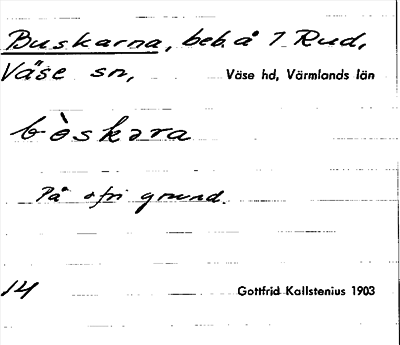 Buskarna, beb. å 7 Rud,
Väse sn, Väse hd, Värmlands län
bòskara
På ofri grund.
14 Gottfrid Kallstenius 1903